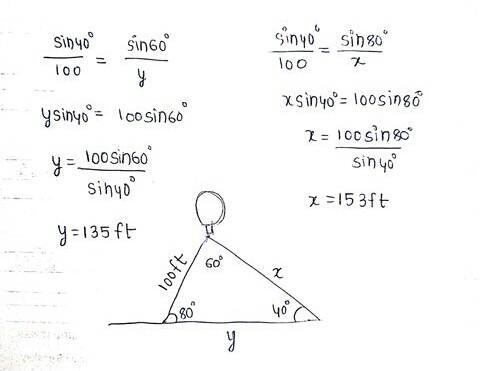 sin40°/100 = sin60°/y
ysin40° = 100sin60°
y = 100sin60°/sin40°
y = 135 ft
sin40°/100 = sin80°/x
xsin40° = 100sin80°
x = 100sin80°/sin40°
x = 153ft
100ft
60°
x
80°
40°
y